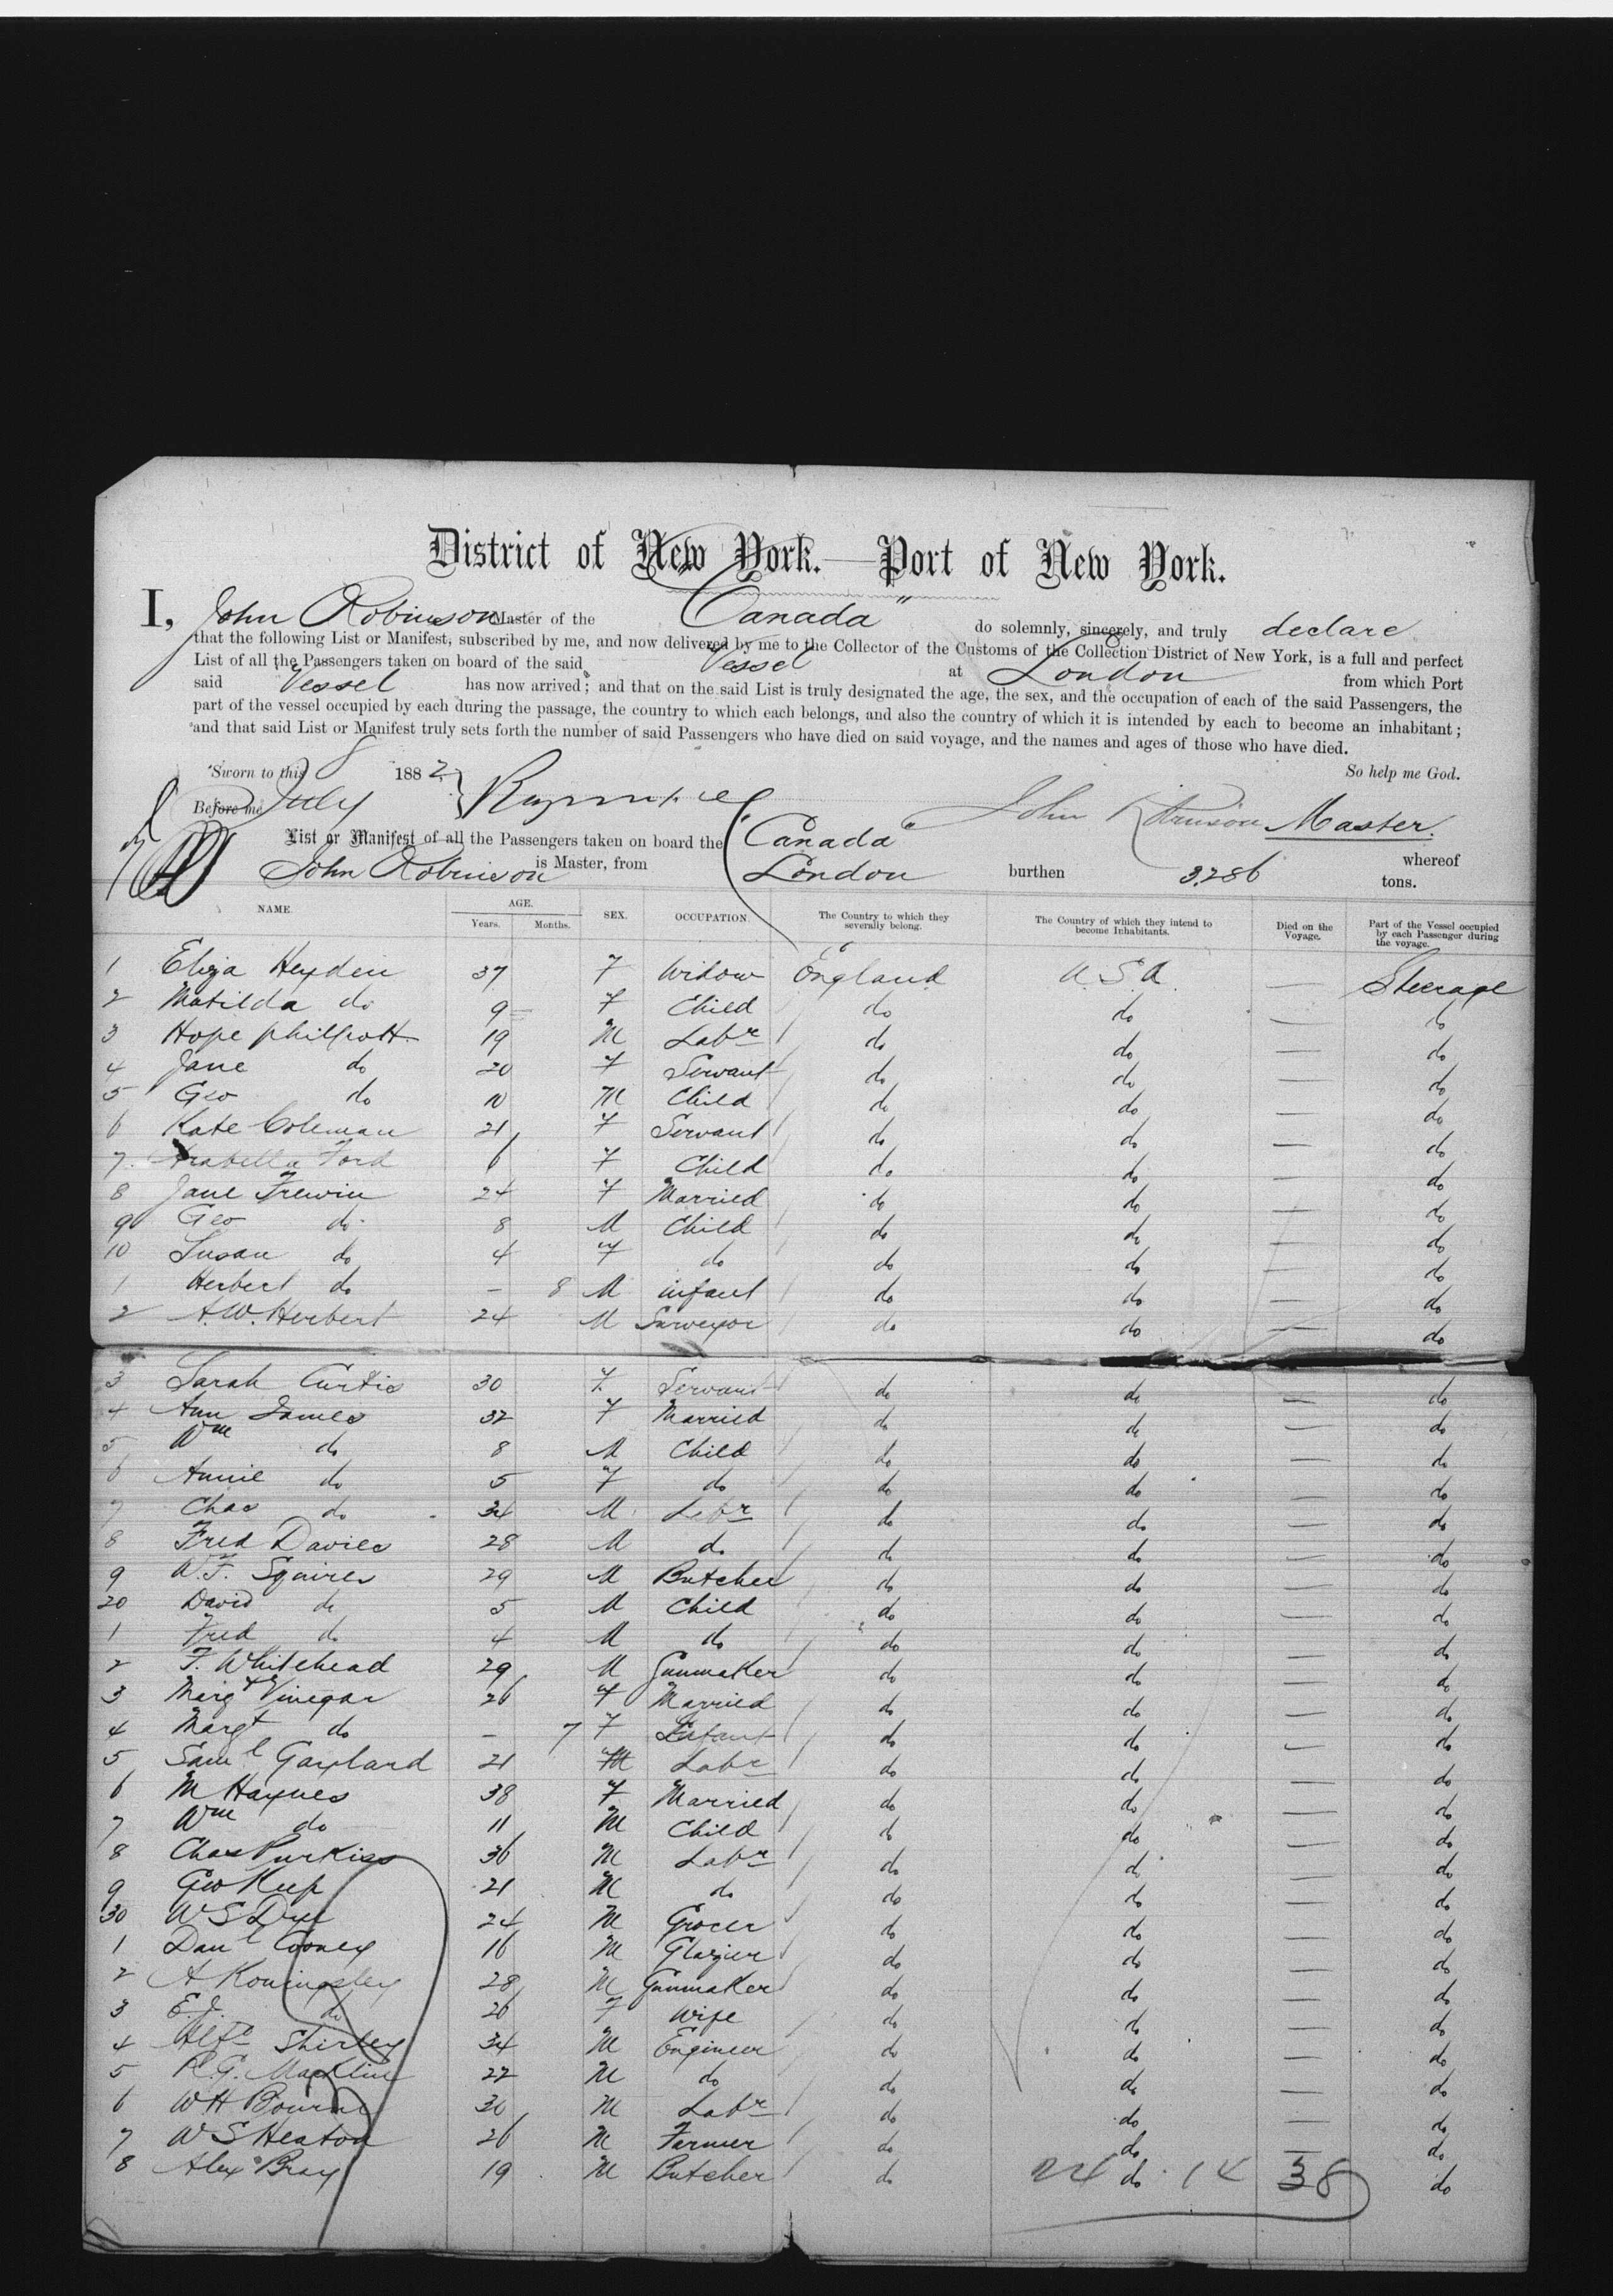 District of New York.—Port of New York.
I, John Robinson Master of the "Canada" do solemnly, sincerely, and truly declare
that the following List or Manifest, subscribed by me, and now delivered by me to the Collector of the Customs of the Collection District of New York, is a full and perfect
List of all the Passengers taken on board of the said Vessel at London from which Port
said Vessel has now arrived; and that on the said List is truly designated the age, the sex, and the occupation of each of the said Passengers, the
part of the vessel occupied by each during the passage, the country to which each belongs, and also the country of which it is intended by each to become an inhabitant;
and that said List or Manifest truly sets forth the number of said Passengers who have died on said voyage, and the names and ages of those who have died.
Sworn to this 8 1882 So help me God.
Before me July John Robinson Master.
List or Manifest of all the Passengers taken on board the "Canada" whereof
John Robinson is Master, from London burthen 3,286 tons.
NAME. AGE. Years. Months. SEX. OCCUPATION. The Country to which they severally belong. The Country of which they intend to become Inhabitants. Died on the Voyage. Part of the Vessel occupied by each Passenger during the voyage.
1 Eliza Heyden 37 F Widow England U.S.A — Steerage
2 Matilda do 9 F Child do do — do
3 Hope Philpott 19 M Labr do do — do
4 Jane do 20 F Servant do do — do
5 Geo do 10 M Child do do — do
6 Kate Coleman 21 F Servant do do — do
7 Arabella Ford 6 F Child do do — do
8 Jane Frewin 24 F Married do do — do
9 Geo do 8 M Child do do — do
10 Susan do 4 F do do do — do
1 Herbert do — 8 M infant do do — do
2 A.W. Herbert 24 M Surveyor do do — do
3 Sarah Curtis 30 F. Servant do do — do
4 Ann James 32 F Married do do — do
5 Wm do 8 M Child do do — do
6 Annie do 5 F do do do — do
7 Chas do 34 M Labr do do — do
8 Fred Davies 28 M do do do — do
9 W.F. Squires 29 M Butcher do do — do
20 David do 5 M Child do do — do
1 Fred do 4 M do do do — do
2 F. Whitehead 29 M Gunmaker do do — do
3 Margt Vinegar 26 F Married do do — do
4 Margt do — 7 F Infant do do — do
5 Saml Gayland 21 M Labr do do — do
6 M Haynes 38 F Married do do — do
7 Wm do 11 M Child do do — do
8 Chas Purkiss 36 M Labr do do — do
9 Geo Keep 21 M do do do — do
30 W S Dye 24 M Grocer do do — do
1 Danl Cooney 16 M Glazier do do — do
2 A Koningsley 28 M Gunmaker do do — do
3 E.J. do 26 F Wife do do — do
4 Alfd Shirley 34 M Engineer do do — do
5 R.G. Macklin 22 M do do do — do
6 W H Bourne 30 M Labr do do — do
7 W S Heaton 26 M Farmer do do — do
8 Alex Bray 19 M Butcher do do — do
24 14 38